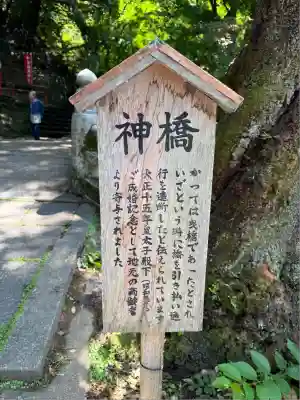 神橋
かつては曳橋であったとされ
いざという時に橋を引き払い通
行を遮断したと伝えられています
大正十五年皇太子殿下(昭和天皇)
ご成婚記念として地元の
より寄与されました